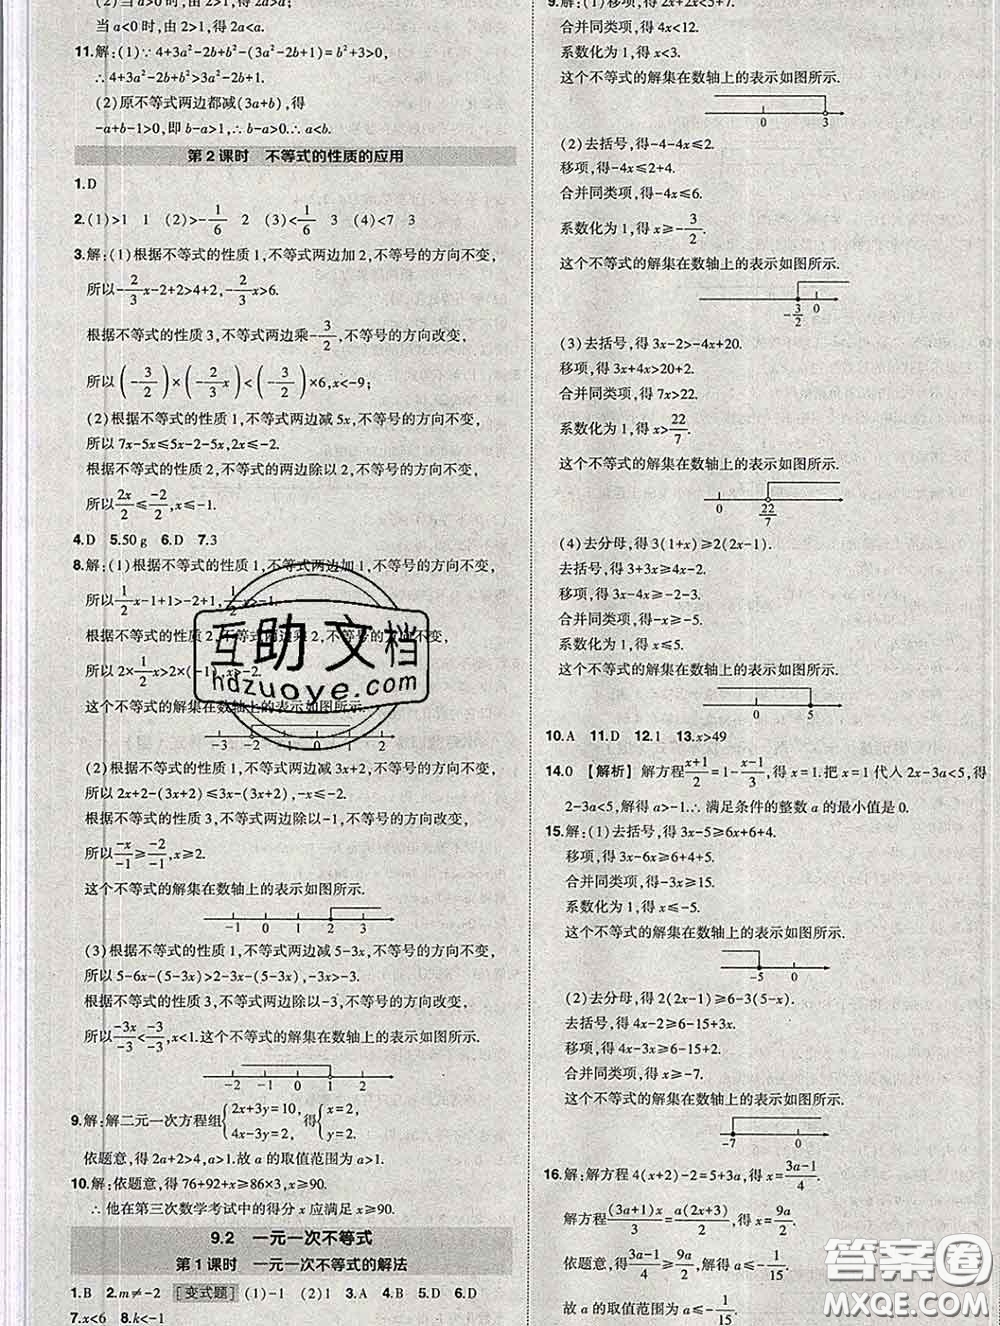 (2)当a>0时,由2>1,得2a>a;
当a<0时,由2>1,得2a<a.
11.解:(1)∵4+3a²-2b+b²-(3a²-2b+1)=b²+3>0,
∴4+3a²-2b+b²>3a²-2b+1.
(2)原不等式两边都减(3a+b),得
-a+b-1>0,即b-a>1,∴b-a>0.∴a<b.
第2课时 不等式的性质的应用
1.D
2.(1)>1 1 (2)>-1/6 2 (3)<1/6 3 (4)<7 3
3.解:(1)根据不等式的性质1,不等式两边加2,不等号的方向不变,
所以-2/3x-2+2>4+2,-2/3x>6.
根据不等式的性质3,不等式两边乘-3/2,不等号的方向改变,
所以(-3/2)×(-2/3x)<(-3/2)×6,x<-9;
(2)根据不等式的性质1,不等式两边减5x,不等号的方向不变,
所以7x-5x≤5x-2-5x,2x≤-2.
根据不等式的性质2,不等式的两边除以2,不等号的方向不变,
所以2x/2≤-2/2,x≤-1.
4.D 5.50 g 6.D 7.3
8.解:(1)根据不等式的性质1,不等式两边加1,不等号的方向不变,
所以1/2x-1+1>-2+1,1/2x>-1.
根据不等式的性质2,不等式两边乘2,不等号的方向不变,
所以2×1/2x>2×(-1),x>-2.
这个不等式的解集在数轴上的表示如图所示.
-3 -2 -1 0 1 2
互助文档
hdzuoye.com
(2)根据不等式的性质1,不等式两边减3x+2,不等号的方向不变,
所以2x+2-(3x+2)≤3x-(3x+2),-x≤-2.
根据不等式的性质3,不等式两边除以-1,不等号的方向改变,
所以-x/-1≥-2/-1,x≥2.
这个不等式的解集在数轴上的表示如图所示.
-1 0 1 2 3
(3)根据不等式的性质1,不等式两边减5-3x,不等号的方向不变,
所以5-6x-(5-3x)>2-3x-(5-3x),-3x>-3.
根据不等式的性质3,不等式两边除以-3,不等号的方向改变,
所以-3x/-3<-3/-3,x<1.这个不等式的解集在数轴上的表示如图所示.
-2 -1 0 1 2
9.解:解二元一次方程组{2x+3y=10, 4x-3y=2, 得{x=2, y=2.
依题意,得2a+2>4,故a的取值范围为a>1.
10.解:依题意,得76+92+x≥86×3,得x≥90.
∴他在第三次数学考试中的得分x应满足x≥90.
9.2 一元一次不等式
第1课时 一元一次不等式的解法
1.B 2.m≠-2 [变式题] (1)-1 (2)1 3.A 4.A 5.D 6.D
7.x<6 8.k<-1
9.解:(1)移项,得2x+2x<5+7.
合并同类项,得4x<12.
系数化为1,得x<3.
这个不等式的解集在数轴上的表示如图所示.
0 3
(2)去括号,得-4-4x≤2.
移项,得-4x≤2+4.
合并同类项,得-4x≤6.
系数化为1,得x≥-3/2.
这个不等式的解集在数轴上的表示如图所示.
-3/2 0
(3)去括号,得3x-2>-4x+20.
移项,得3x+4x>20+2.
合并同类项,得7x>22.
系数化为1,得x>22/7.
这个不等式的解集在数轴上的表示如图所示.
0 22/7
(4)去分母,得3(1+x)≥2(2x-1).
去括号,得3+3x≥4x-2.
移项,得3x-4x≥-2-3.
合并同类项,得-x≥-5.
系数化为1,得x≤5.
这个不等式的解集在数轴上的表示如图所示.
0 5
10.A 11.D 12.1 13.x>49
14.0 [解析] 解方程x+1/2=1-x-1/3,得x=1.把x=1代入2x-3a<5,得
2-3a<5,解得a>-1.∴满足条件的整数a的最小值是0.
15.解:(1)去括号,得3x-5≥6x+6+4.
移项,得3x-6x≥6+4+5.
合并同类项,得-3x≥15.
系数化为1,得x≤-5.
这个不等式的解集在数轴上的表示如图所示.
-5 0
(2)去分母,得2(2x-1)≥6-3(5-x).
去括号,得4x-2≥6-15+3x.
移项,得4x-3x≥6-15+2.
合并同类项,得x≥-7.
这个不等式的解集在数轴上的表示如图所示.
-7 0
16.解:解方程4(x+2)-2=5+3a,得x=3a-1/4.
解方程(3a+1)x/3=a(2x+3)/2,得x=9a/2.
依题意,得3a-1/4≥9a/2,解得a≤-1/15.
故a的取值范围为a≤-1/15.
答案圈
MXQE.COM